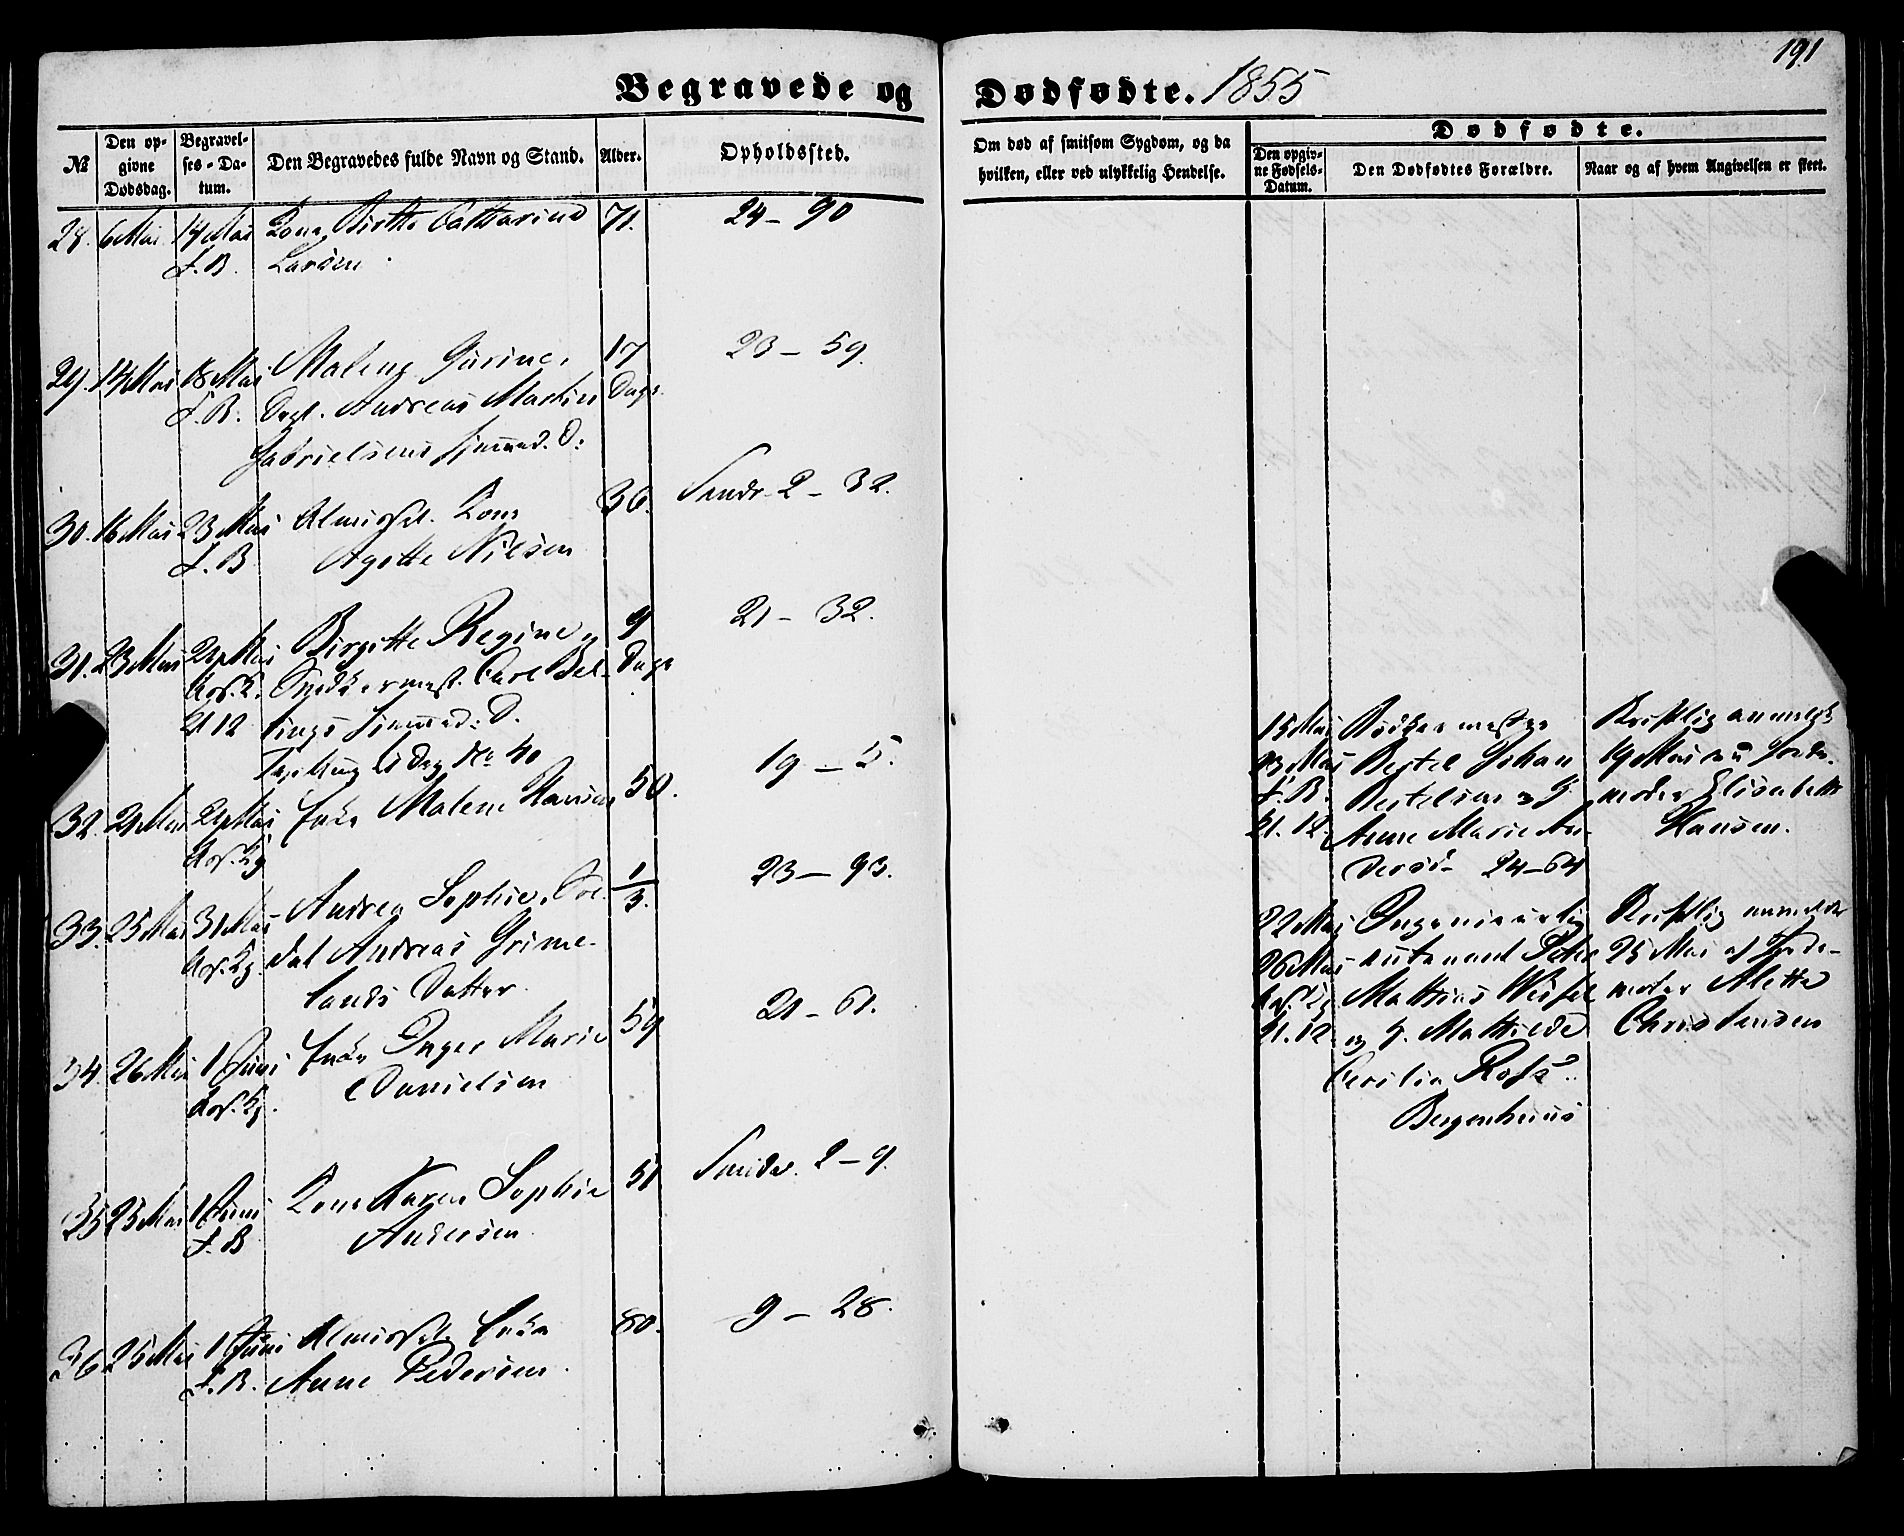 191
Begravede og Dødfødte. 1855
№
Den opgivne Dødsdag.
Begravelses-Datum.
Den Begravedes fulde Navn og Stand.
Alder.
Opholdssted.
Om død af smitsom Sygdom, og da hvilken, eller ved ulykkelig Hendelse.
Dødfødte.
Den opgivne Fødsels-Datum.
Den Dødfødtes Forældre.
Naar og af hvem Angivelsen er skeet.
28. 6 Mai 14 Mai Kone Birthe Catharina 71. 24 – 90
J. B. Larsen
29. 14 Mai 18 Mai Malene Gurine, 17 23 – 59.
J. B. Andreas Martin Dage
Gabrielsens D:
30. 16 Mai 23 Mai Kone 36. Sandv. 2 – 32.
J. B. Agethe Nilsen
31. 23 Mai 24 Mai Birgitte Regine, 9 21 – 32.
Snedkermest. Carl Dage
21 12 D.
No 40
32. 24 Mai Enke Malene Hansen 50. 19 – 5.
33. 25 Mai 31 Mai Andrea Sophie, 1/3. 23 – 93.
Andreas Grime-
lands Datter
34. 26 Mai 1 Juni Enke Inger Marie 59 21 – 61.
Danielsen
35 25 Mai 1 Juni Kone Karen Sophie 51 Sandv. 2 – 9.
J. B Andersen
36 25 Mai 1 Juni Enke 80. 9 – 28.
J. B. Anne Pedersen
15 Mai Bødkermester Skriftlig anmeldt
23 Mai Bertel Johan 19 Mai Jorde-
J. B. Bertelsen og H moder Elisabeth
21. 12. Anne Marie An- Hansen.
dersd. 24–64
22 Mai Ingenieurlieu- Skriftlig anmeldt
26 Mai tenant Peter 25 Mai af Jorde-
Mathias moder Alethe
21. 12. og H. Mathilde Christensen
Cecilia
Bergenhuus